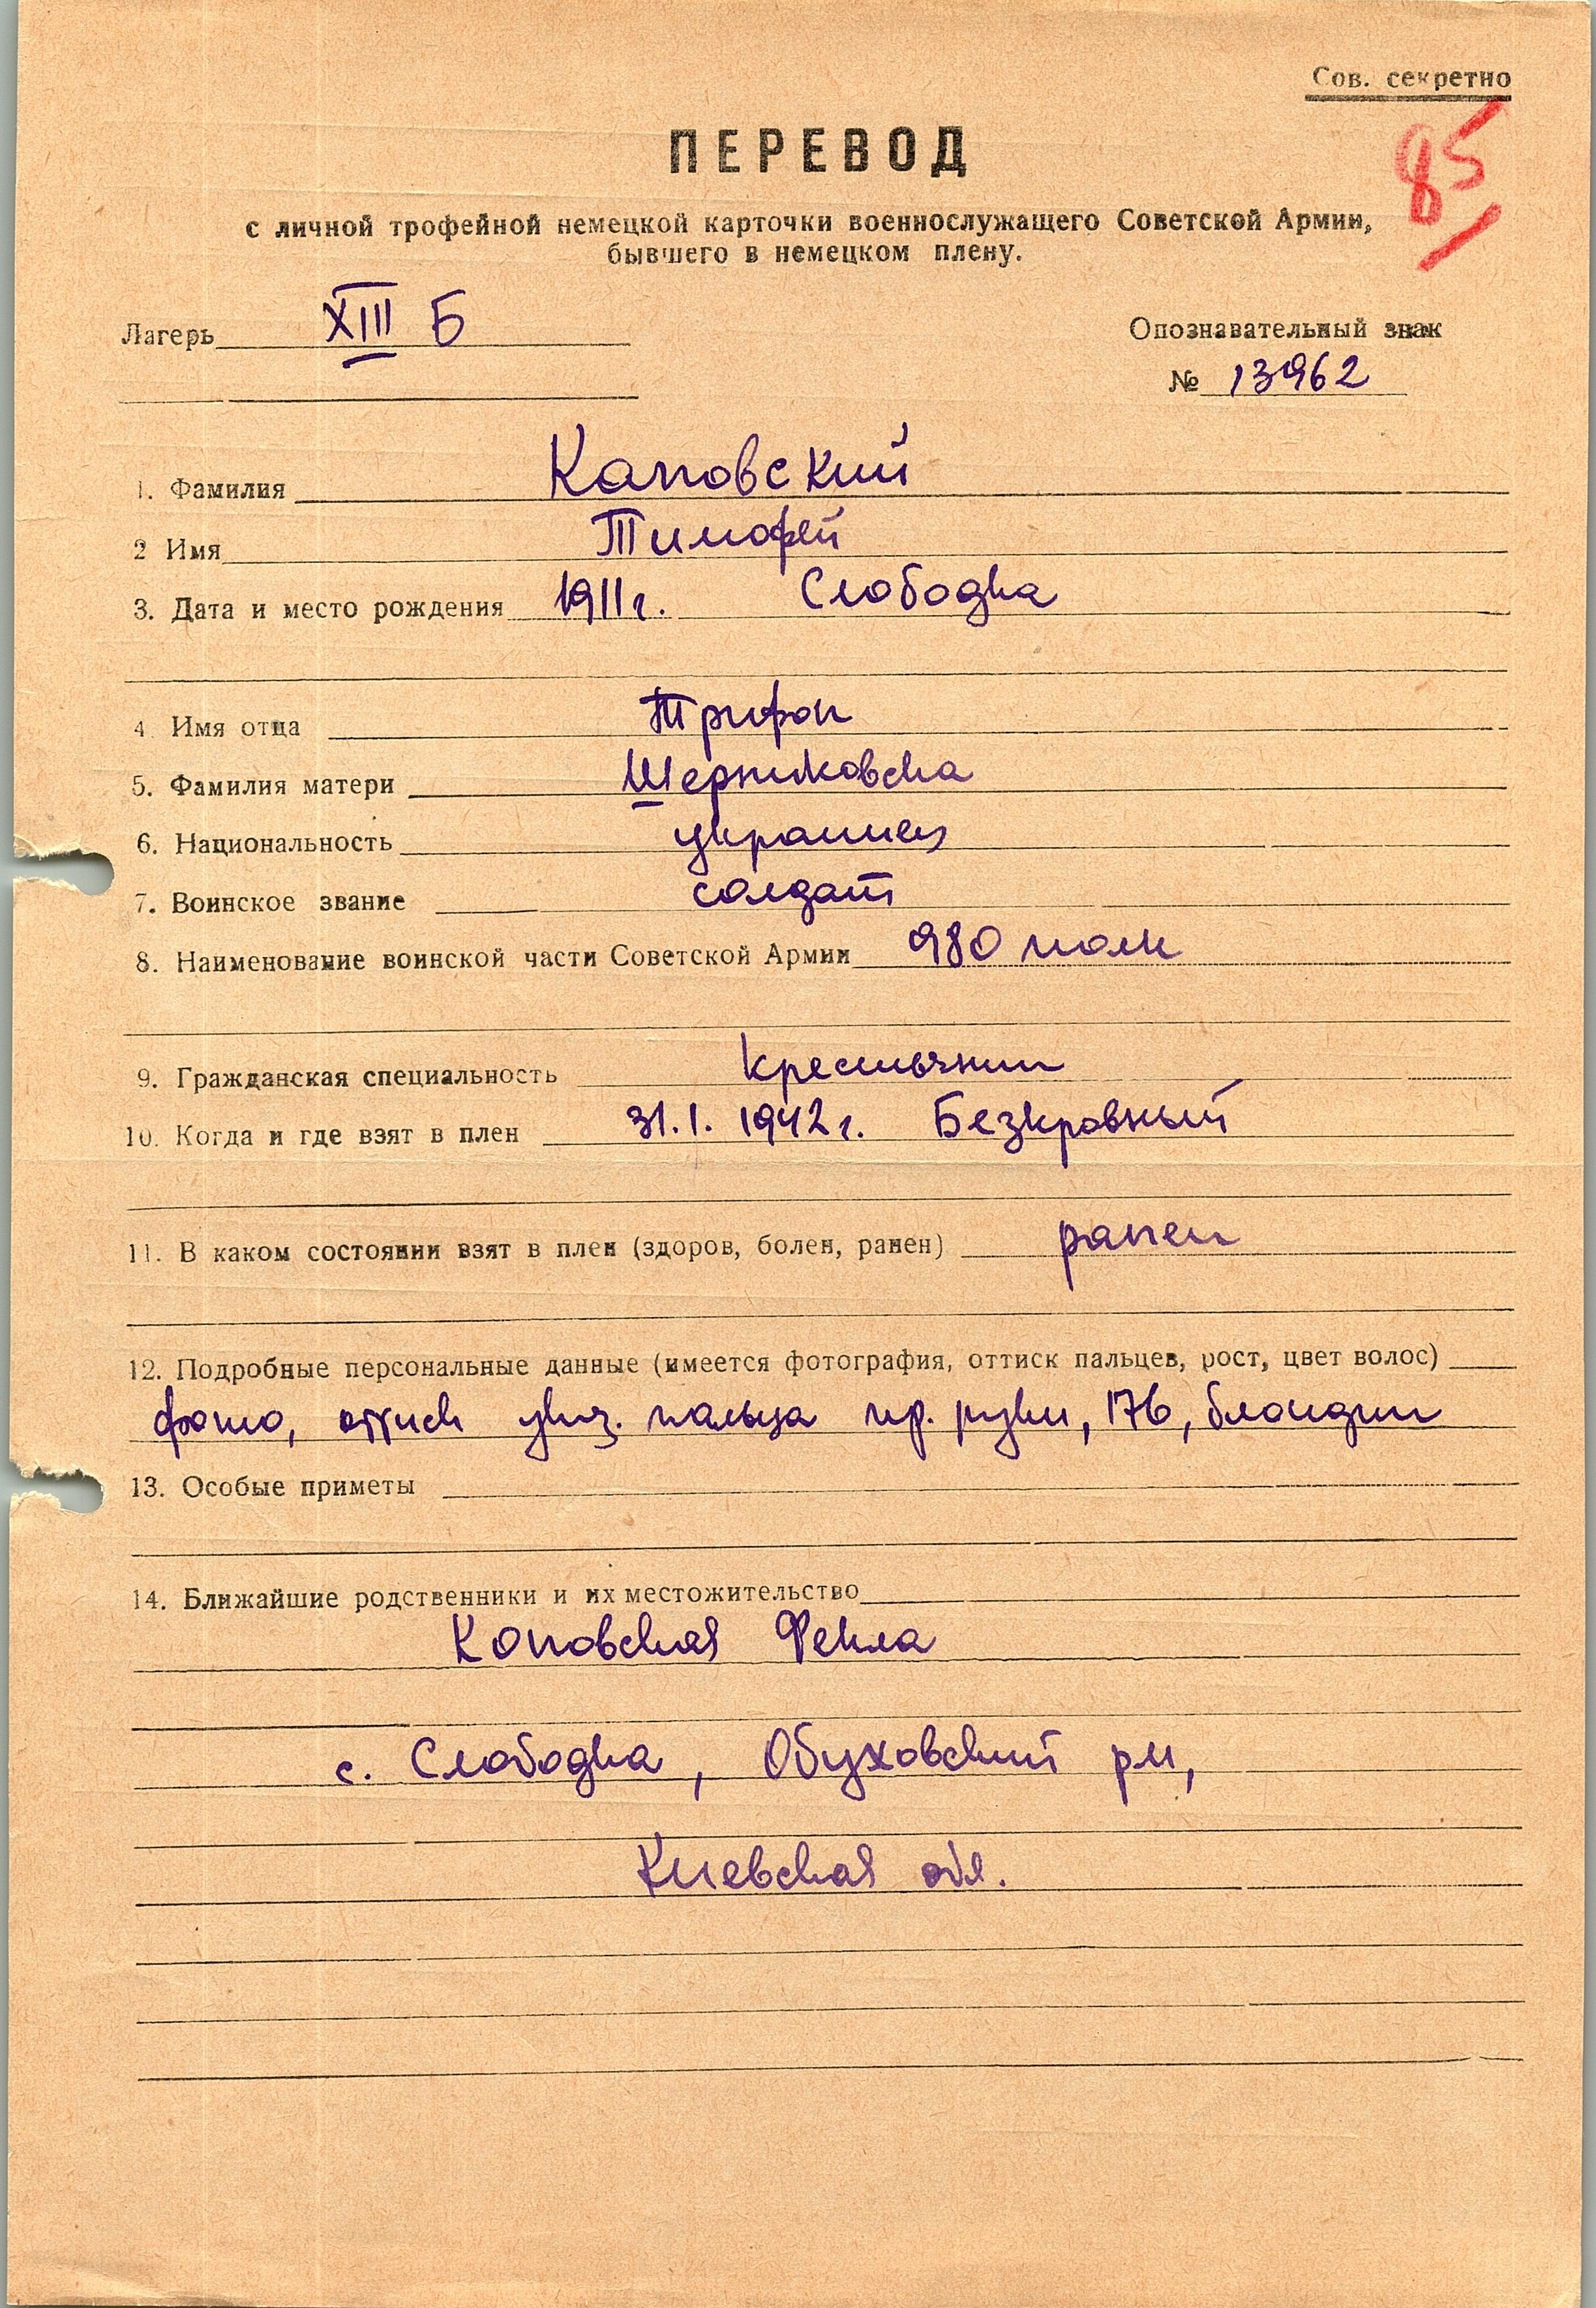 Сов. секретно
85
ПЕРЕВОД
с личной трофейной немецкой карточки военнослужащего Советской Армии,
бывшего в немецком плену.
Лагерь XIII Б
Опознавательный знак
№ 13962
1. Фамилия Каповский
2 Имя Тимофей
3. Дата и место рождения 1911 г. Слободка
4. Имя отца Трифон
5. Фамилия матери Шерниковска
6. Национальность украинец
7. Воинское звание солдат
8. Наименование воинской части Советской Армии 980 полк
9. Гражданская специальность крестьянин
10. Когда и где взят в плен 31.1.1942 г. Безкровный
11. В каком состоянии взят в плен (здоров, болен, ранен) ранен
12. Подробные персональные данные (имеется фотография, оттиск пальцев, рост, цвет волос)
фото, оттиск указ. пальца пр. руки, 176, блондин
13. Особые приметы
14. Ближайшие родственники и их местожительство
Коповская Фекла
с. Слободка, Обуховский р-н,
Киевская обл.